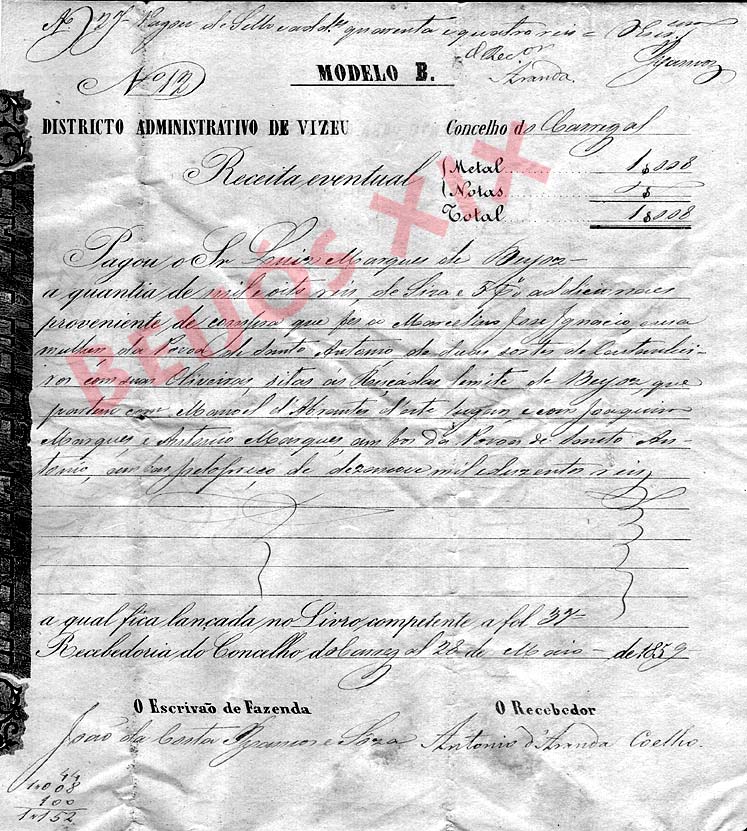 Nº 27 Pagou de Sello a addel quarenta e quatro reis =
O Recor Escam
Aranda. Ramos
Nº 12
MODELO B.
DISTRICTO ADMINISTRATIVO DE VIZEU Concelho do Carregal
Receita eventual
Metal 1$008
Notas $
Total 1$008
BEIJÓS XIX
Pagou o Sr Luis Marques de Beijoz
a quantia de mil oito reis, de Siza e 5 p% addicionaes
proveniente de compra que fes a Marcelino Jose Ignacio, e sua
mulher, da Povoa de Santo Antonio, de duas sortes de Castanhei-
ros com suas Oliveiras sitas ás limite de Beijoz, que
partem com Manoel d'Abrantes d'este lugar e com Joaquim
Marques e Antonio Marques ambos da Povoa de Santo An-
tonio, ambas pelo preço de dezanove mil e duzentos reis
a qual fica lançada no Livro competente a fol 37
Recebedoria do Concelho do Carregal 28 de Maio de 1859
O Escrivão de Fazenda O Recebedor
João da Costa Ramos e Antonio d'Aranda Coelho.
44
1008
100
1152